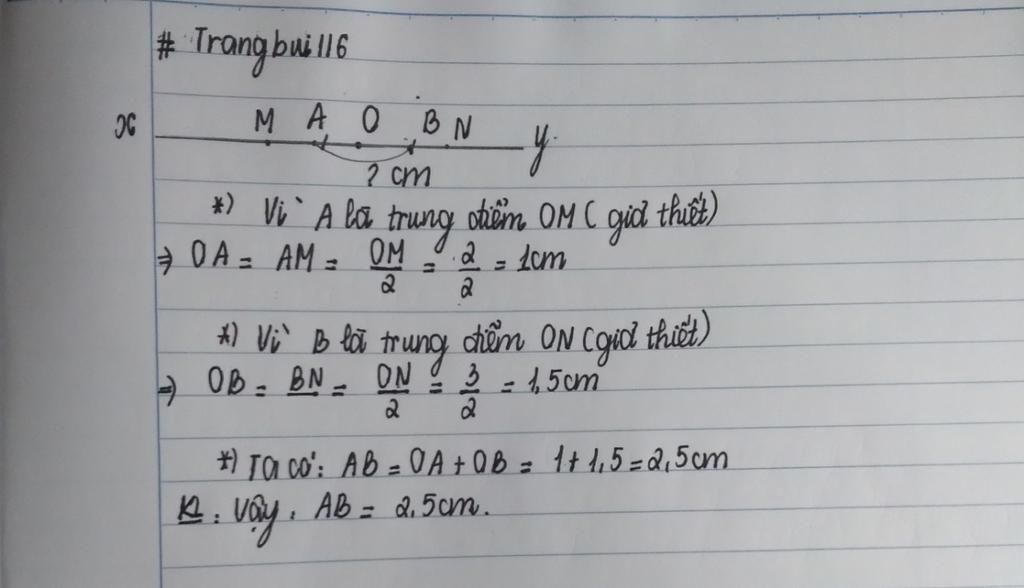 # Trangbui116
x M A O B N y
? cm
*) Vì A là trung điểm OM (giả thiết)
⇒ OA = AM = OM/2 = 2/2 = 1cm
*) Vì B là trung điểm ON (giả thiết)
⇒ OB = BN = ON/2 = 3/2 = 1,5cm
*) Ta có: AB = OA + OB = 1 + 1,5 = 2,5cm
KL: Vậy, AB = 2,5cm.